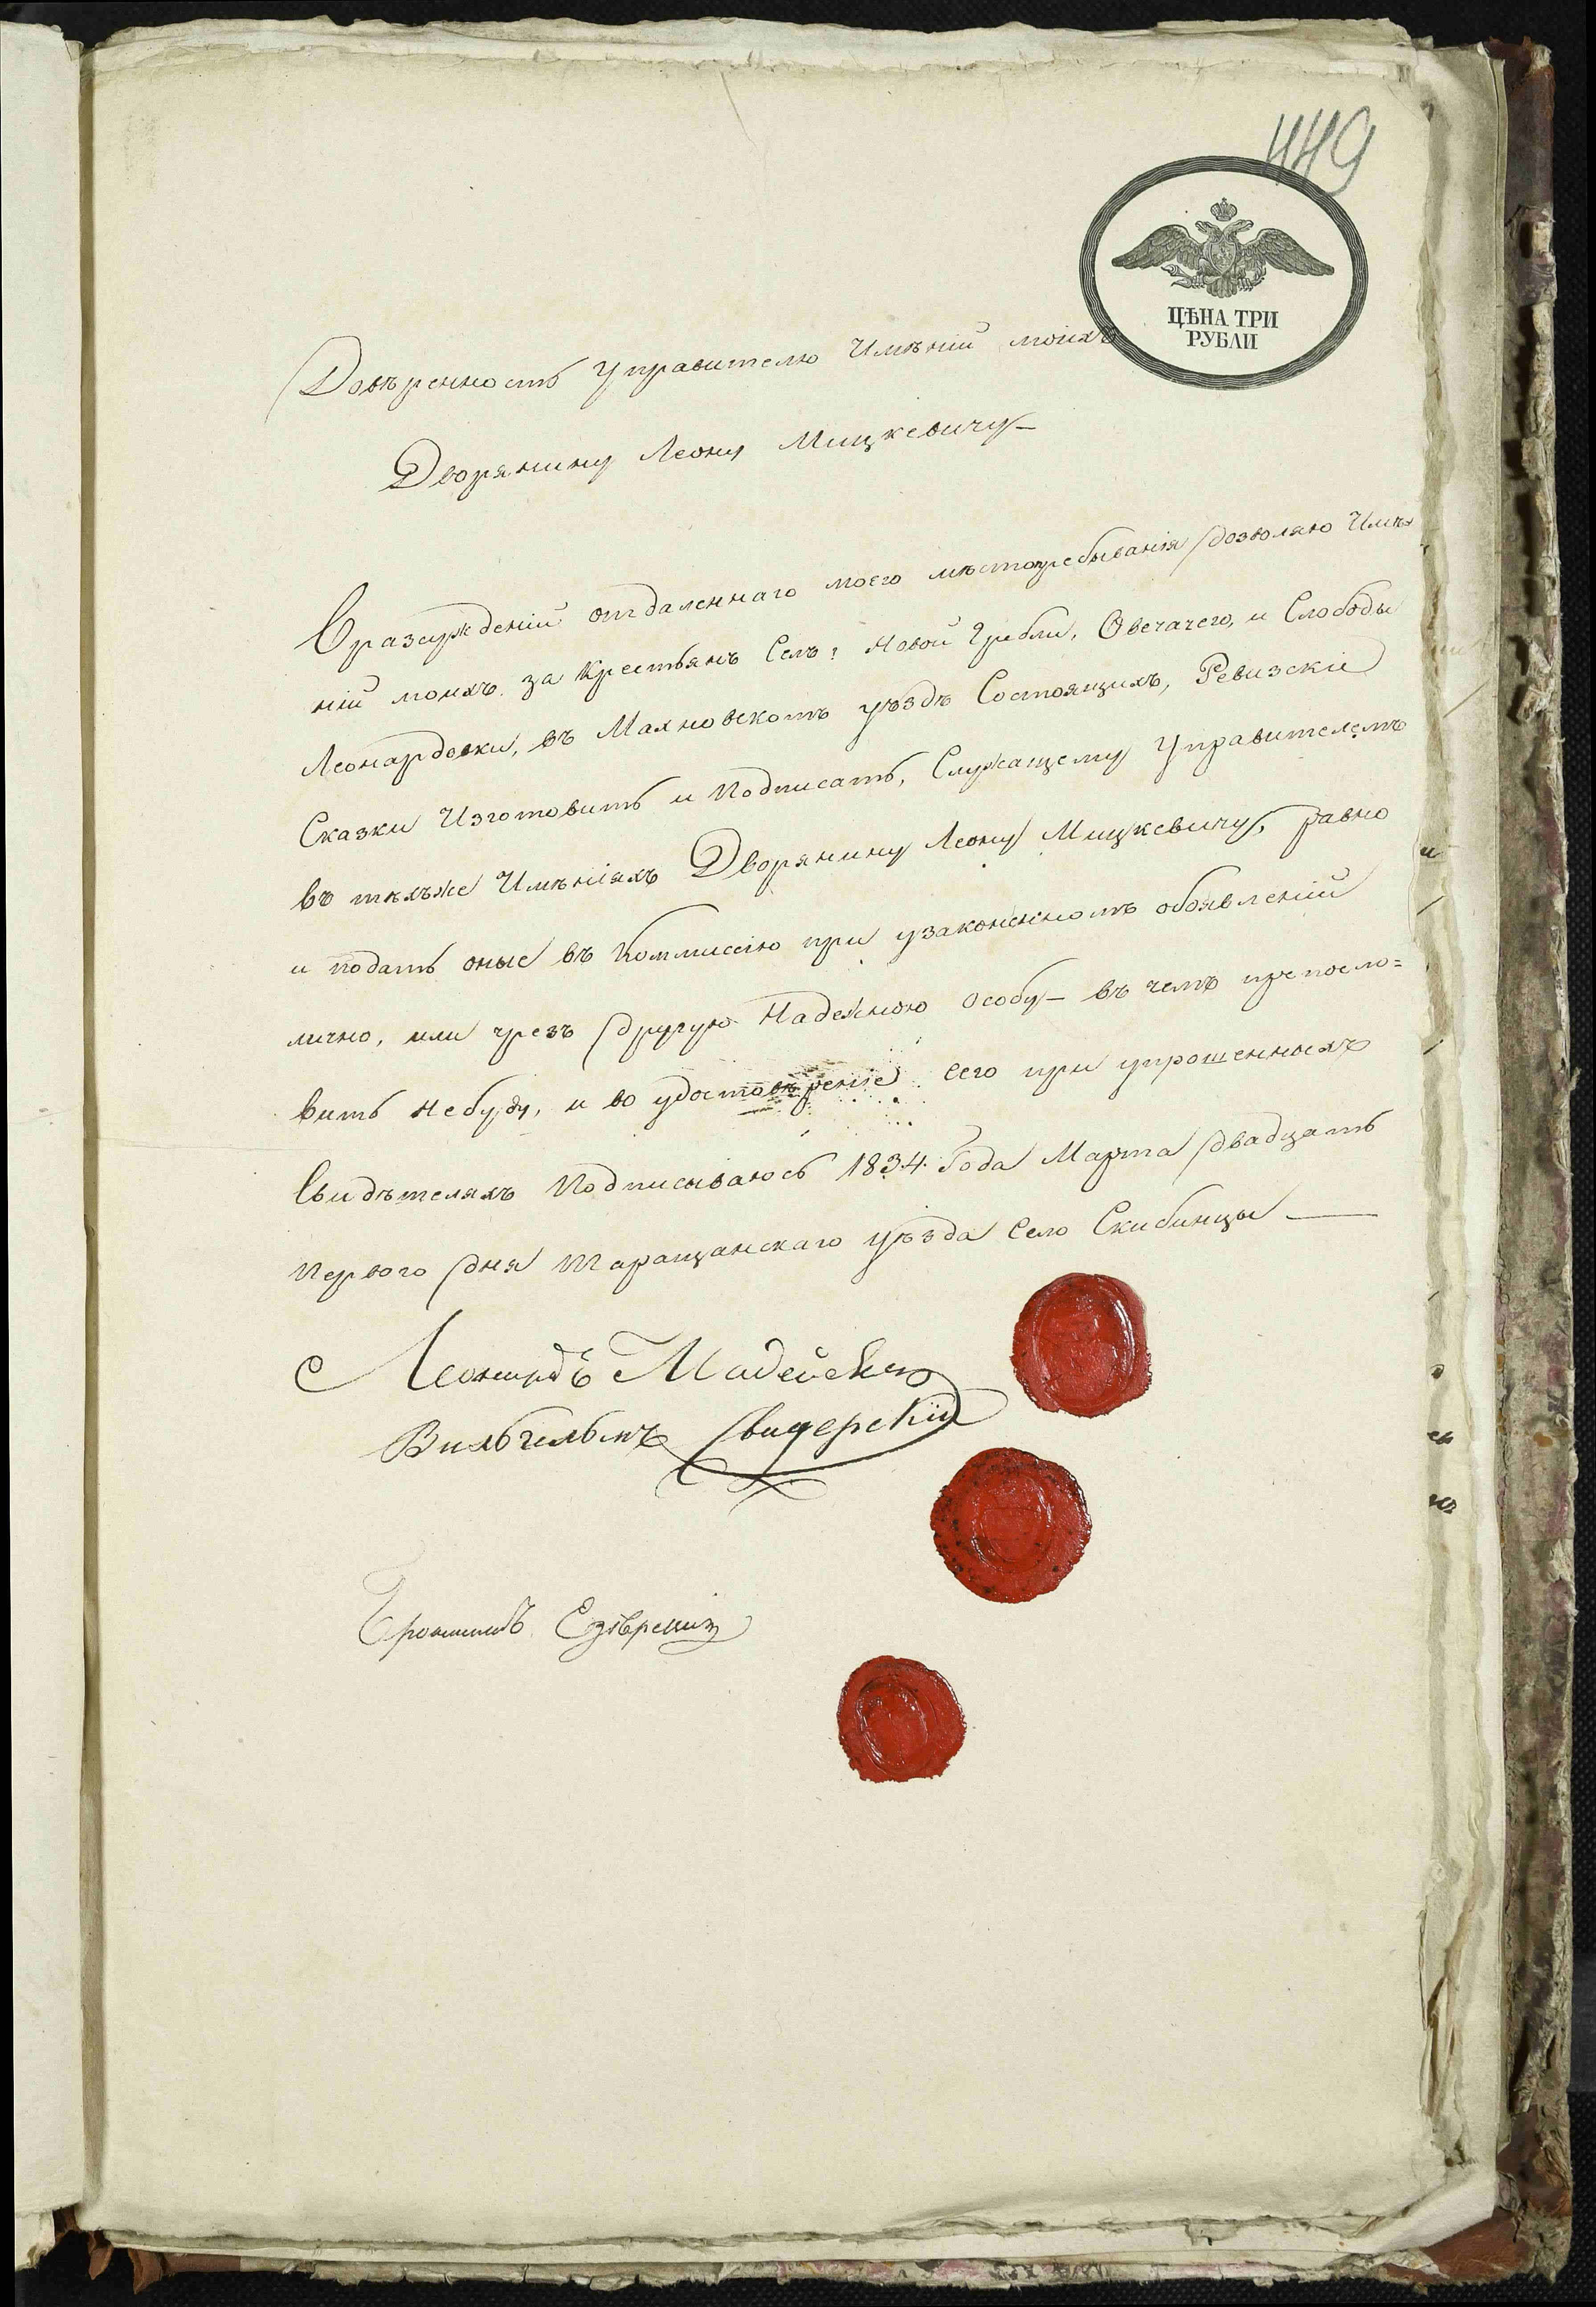 449
ЦѢНА ТРИ
РУБЛИ
Довѣренность Управителю Имѣній моихъ
Дворянину Леону Мицкевичу
Вразсужденіи отдаленнаго моего мѣстопребыванія дозволяю Имѣ
ній моихъ за крестьянъ Селъ: Новой Гребли, Овечачего, и Слободы
Леонардовки, въ Махновскомъ уѣздѣ Состоящихъ, Ревизскіе
Сказки Изготовить и Подписать, Служащему Управителемъ
въ тѣхъже Имѣніяхъ Дворянину Леону Мицкевичу, равно
и подать оные въ Коммиссію при узаконенномъ обоявленіи
лично, или чрезъ другую Надежною особу — въ чемъ препосло=
вить небуду, и во удостовѣреніе сего при упрошенныхъ
Свидѣтеляхъ Подписываюсь 1834. Года Марта двадцать
Первого дня Таращанскаго уѣзда Село Скибинцы —
Леонардъ Мадейскій
Вильгельмъ Свидерскій